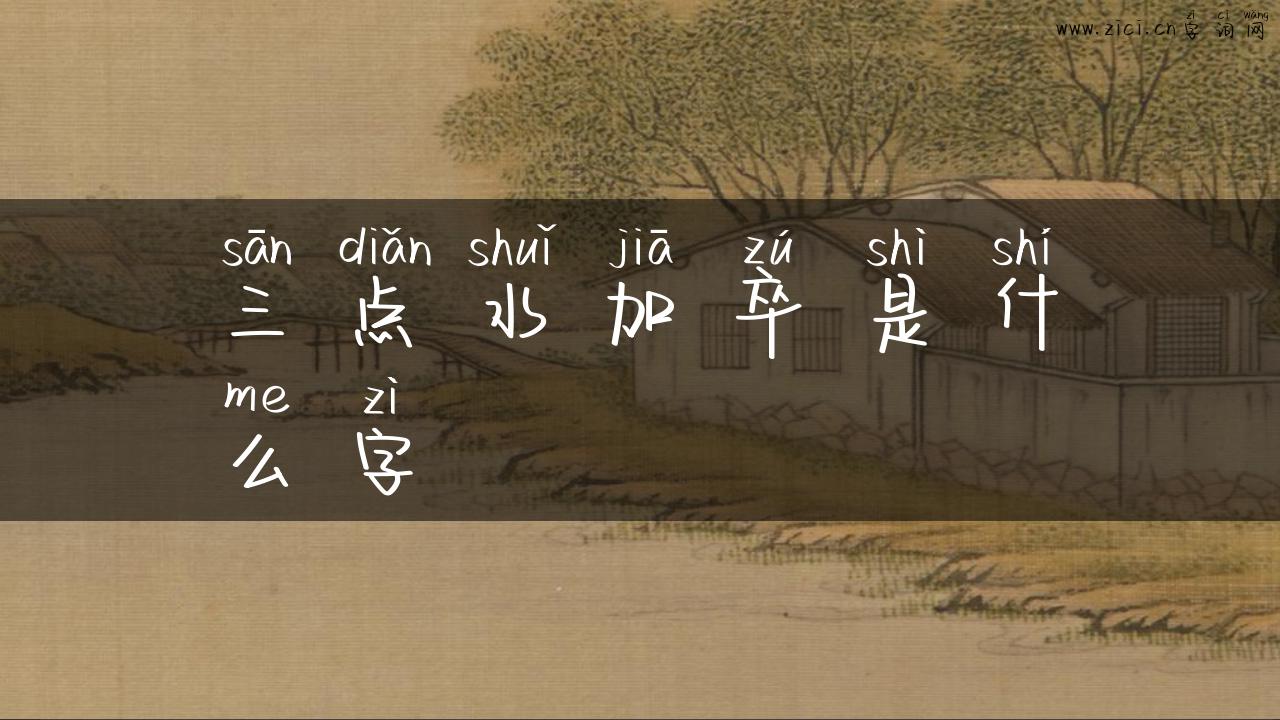 zì cí wǎng
www.zici.cn 字词网
sān diǎn shuǐ jiā zú shì shí
三点水加卒是什
me zì
么字